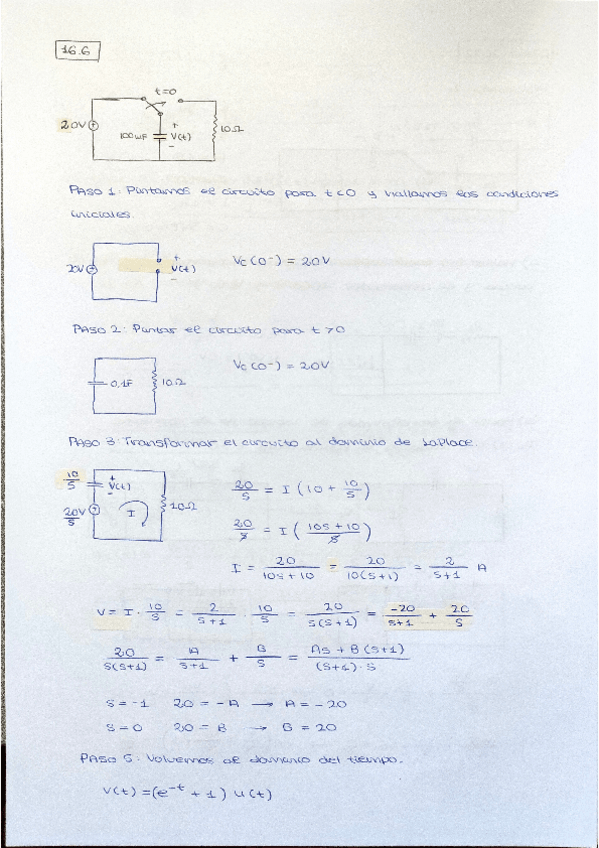 16.6
t=0
20V
100mF
+
V(t)
-
10Ω
PASO 1: Pintamos el circuito para t<0 y hallamos las condiciones
iniciales.
20V
+
V(t)
-
Vc(0⁻) = 20V
PASO 2: Pintar el circuito para t>0
0,1F
10Ω
Vc(0⁻) = 20V
PASO 3: Transformar el circuito al dominio de Laplace.
10/S
+
V(t)
-
20V/S
I
10Ω
20/S = I (10 + 10/S)
20/S = I (10S+10/S)
I = 20/10S+10 = 20/10(S+1) = 2/S+1 A
V = I · 10/S = 2/S+1 · 10/S = 20/S(S+1) = -20/S+1 + 20/S
20/S(S+1) = A/S+1 + B/S = AS + B(S+1)/(S+1)·S
S=-1 20 = -A → A = -20
S=0 20 = B → B = 20
PASO 5: Volvemos al dominio del tiempo.
V(t) = (e^-t + 1) u(t)